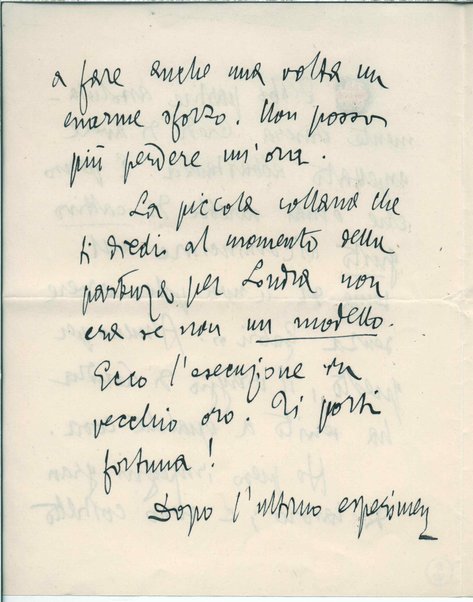 a fare anche una volta un
enorme sforzo. Non posso
più perdere un'ora.
La piccola collana che
ti diedi al momento della
partenza per Londra non
era se non un modello.
Ecco l'esecuzione in
vecchio oro. Ti porti
fortuna!
Dopo l'ultimo